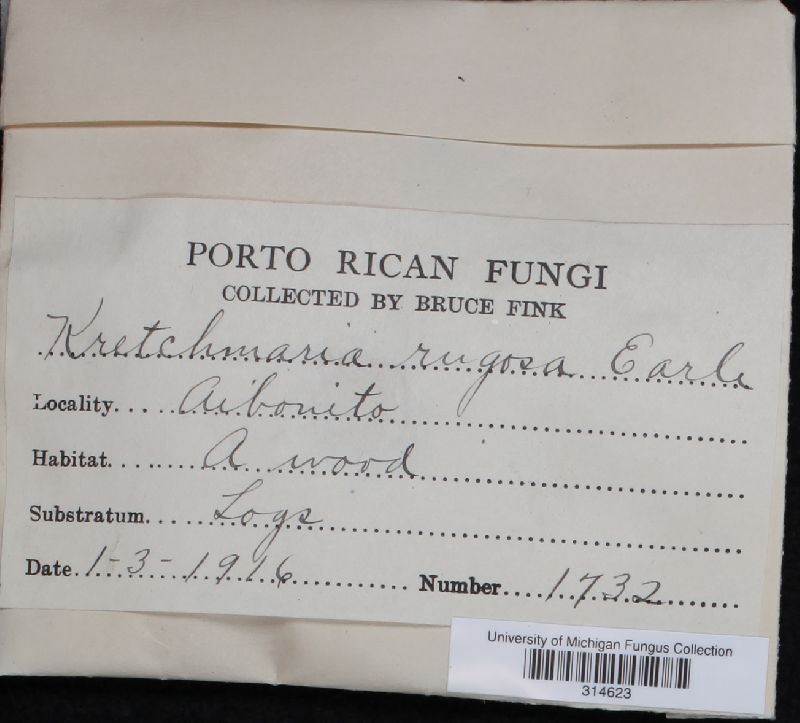 PORTO RICAN FUNGI
COLLECTED BY BRUCE FINK
Kretchmaria rugosa Earle
Locality..... Aibonito
Habitat........ A wood
Substratum..... Logs
Date. 1-3-1916 Number.... 1732
University of Michigan Fungus Collection
314623